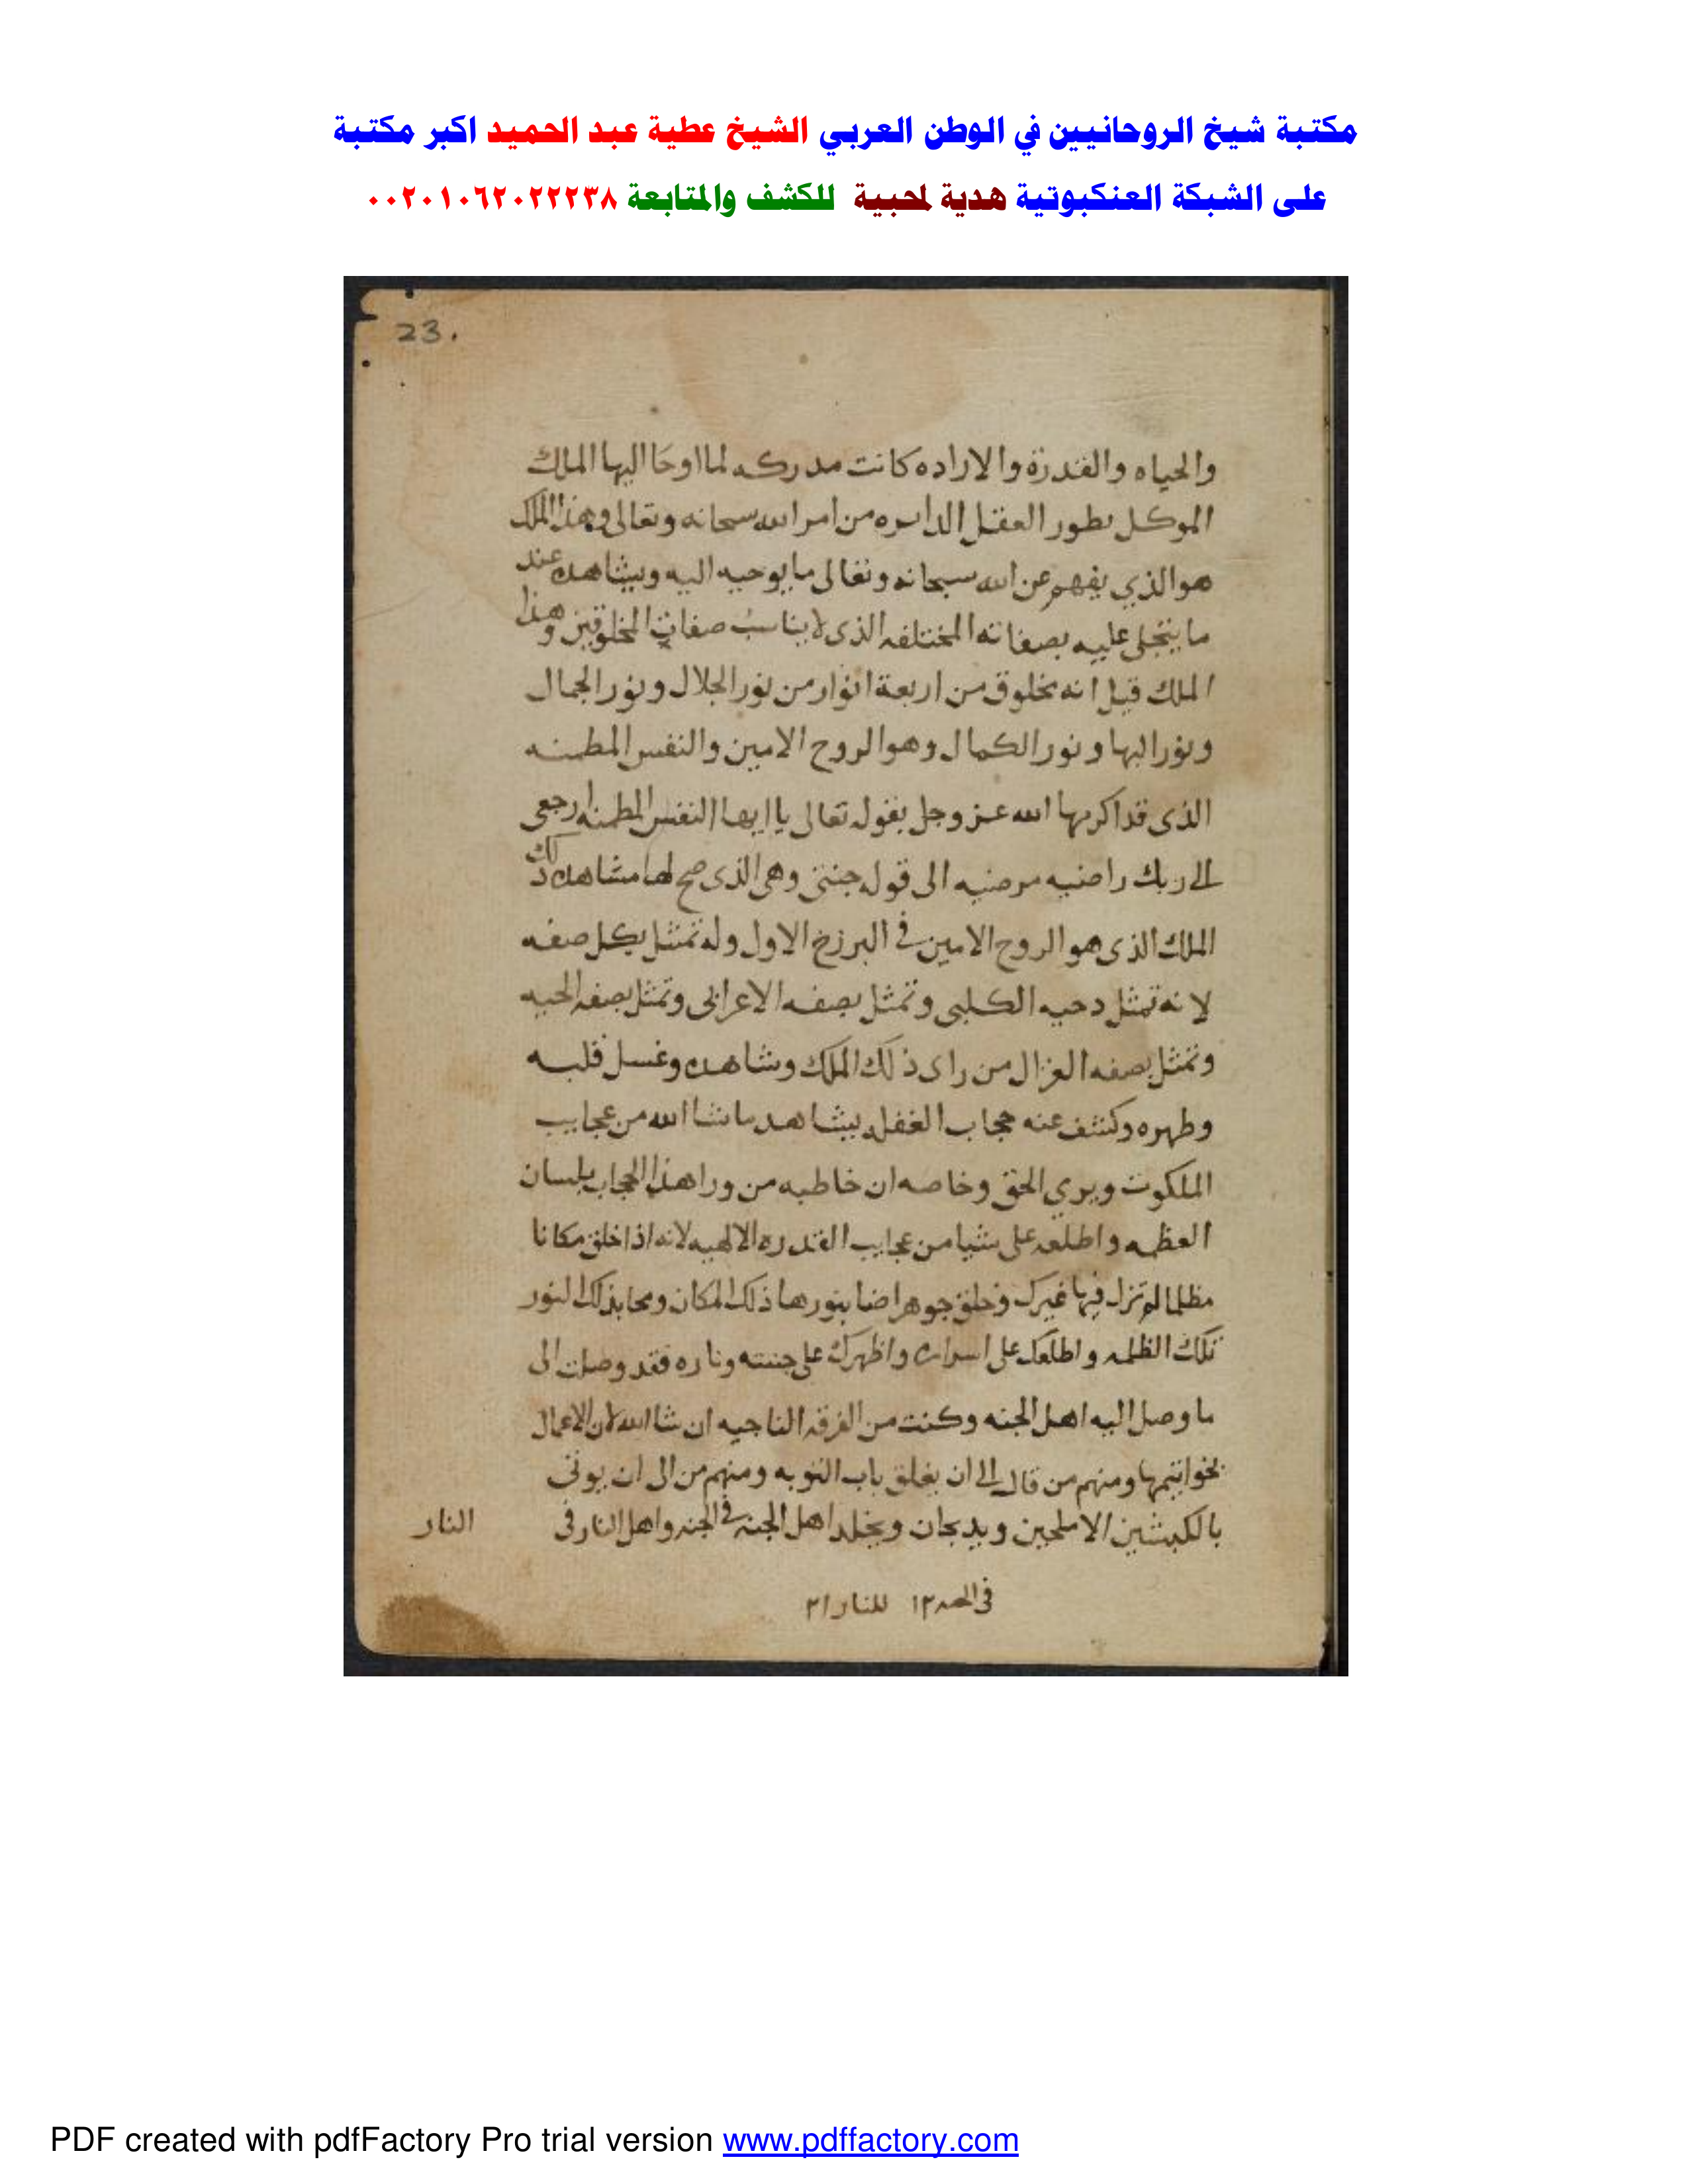 مكتبة شيخ الروحانيين في الوطن العربي الشيخ عطية عبد الحميد اكبر مكتبة
على الشبكة العنكبوتية هدية لمحبية للكشف والمتابعة ٠٠٢٠١٠٦٢٠٢٢٢٣٨
23.
والحياه والقدرة والاراده كانت مدركه لما اوحا اليها الملك
الموكل بطور العقل الدايره من امر الله سبحانه وتعالى وهذا الملك
هو الذي يفهم عن الله سبحانه وتعالى ما يوحيه اليه ويشاهده عند
ما يتجلى عليه بصفاته المختلفه الذى لا يناسب صفات المخلوقين وهذا
الملك قيل انه مخلوق من اربعة انوار من نور الجلال ونور الجمال
ونور البها ونور الكمال وهو الروح الامين والنفس المطمنه
الذى قد اكرمها الله عز وجل بقوله تعالى يا ايها النفس المطمنه ارجعى
الى ربك راضيه مرضيه الى قوله جنتى وهى الذى صح لها مشاهده ذلك
الملك الذى هو الروح الامين فى البرزخ الاول وله تمثل بكل صفه
لانه تمثل دحيه الكلبى وتمثل بصفه الاعرابى وتمثل بصفه الحيه
وتمثل بصفه الغزال من راى ذلك الملك وشاهده وغسل قلبه
وطهره وكشف عنه حجاب الغفله يشاهد ما شا الله من عجايب
الملكوت ويري الحق وخاصه ان خاطبه من ورا هذا الحجاب بلسان
العظمه واطلعه على شيا من عجايب القدره الالهيه لانه اذا خلق مكانا
مظلما لم تزل فيها غيرك وخلق جوهرا ضا بنورها ذلك المكان ومحا بذلك النور
تلك الظلمه واطلعك على اسراره واظهرك على جنته وناره فقد وصلت الى
ما وصل اليه اهل الجنه وكنت من الفرقه الناجيه ان شا الله لان الاعمال
بخواتيمها ومنهم من قال الى ان يغلق باب التوبه ومنهم من الى ان يوتى
بالكبشين الاملحين ويدبحان ويخلد اهل الجنه فى الجنه واهل النار فى
النار
للنار ٣١
PDF created with pdfFactory Pro trial version www.pdffactory.com